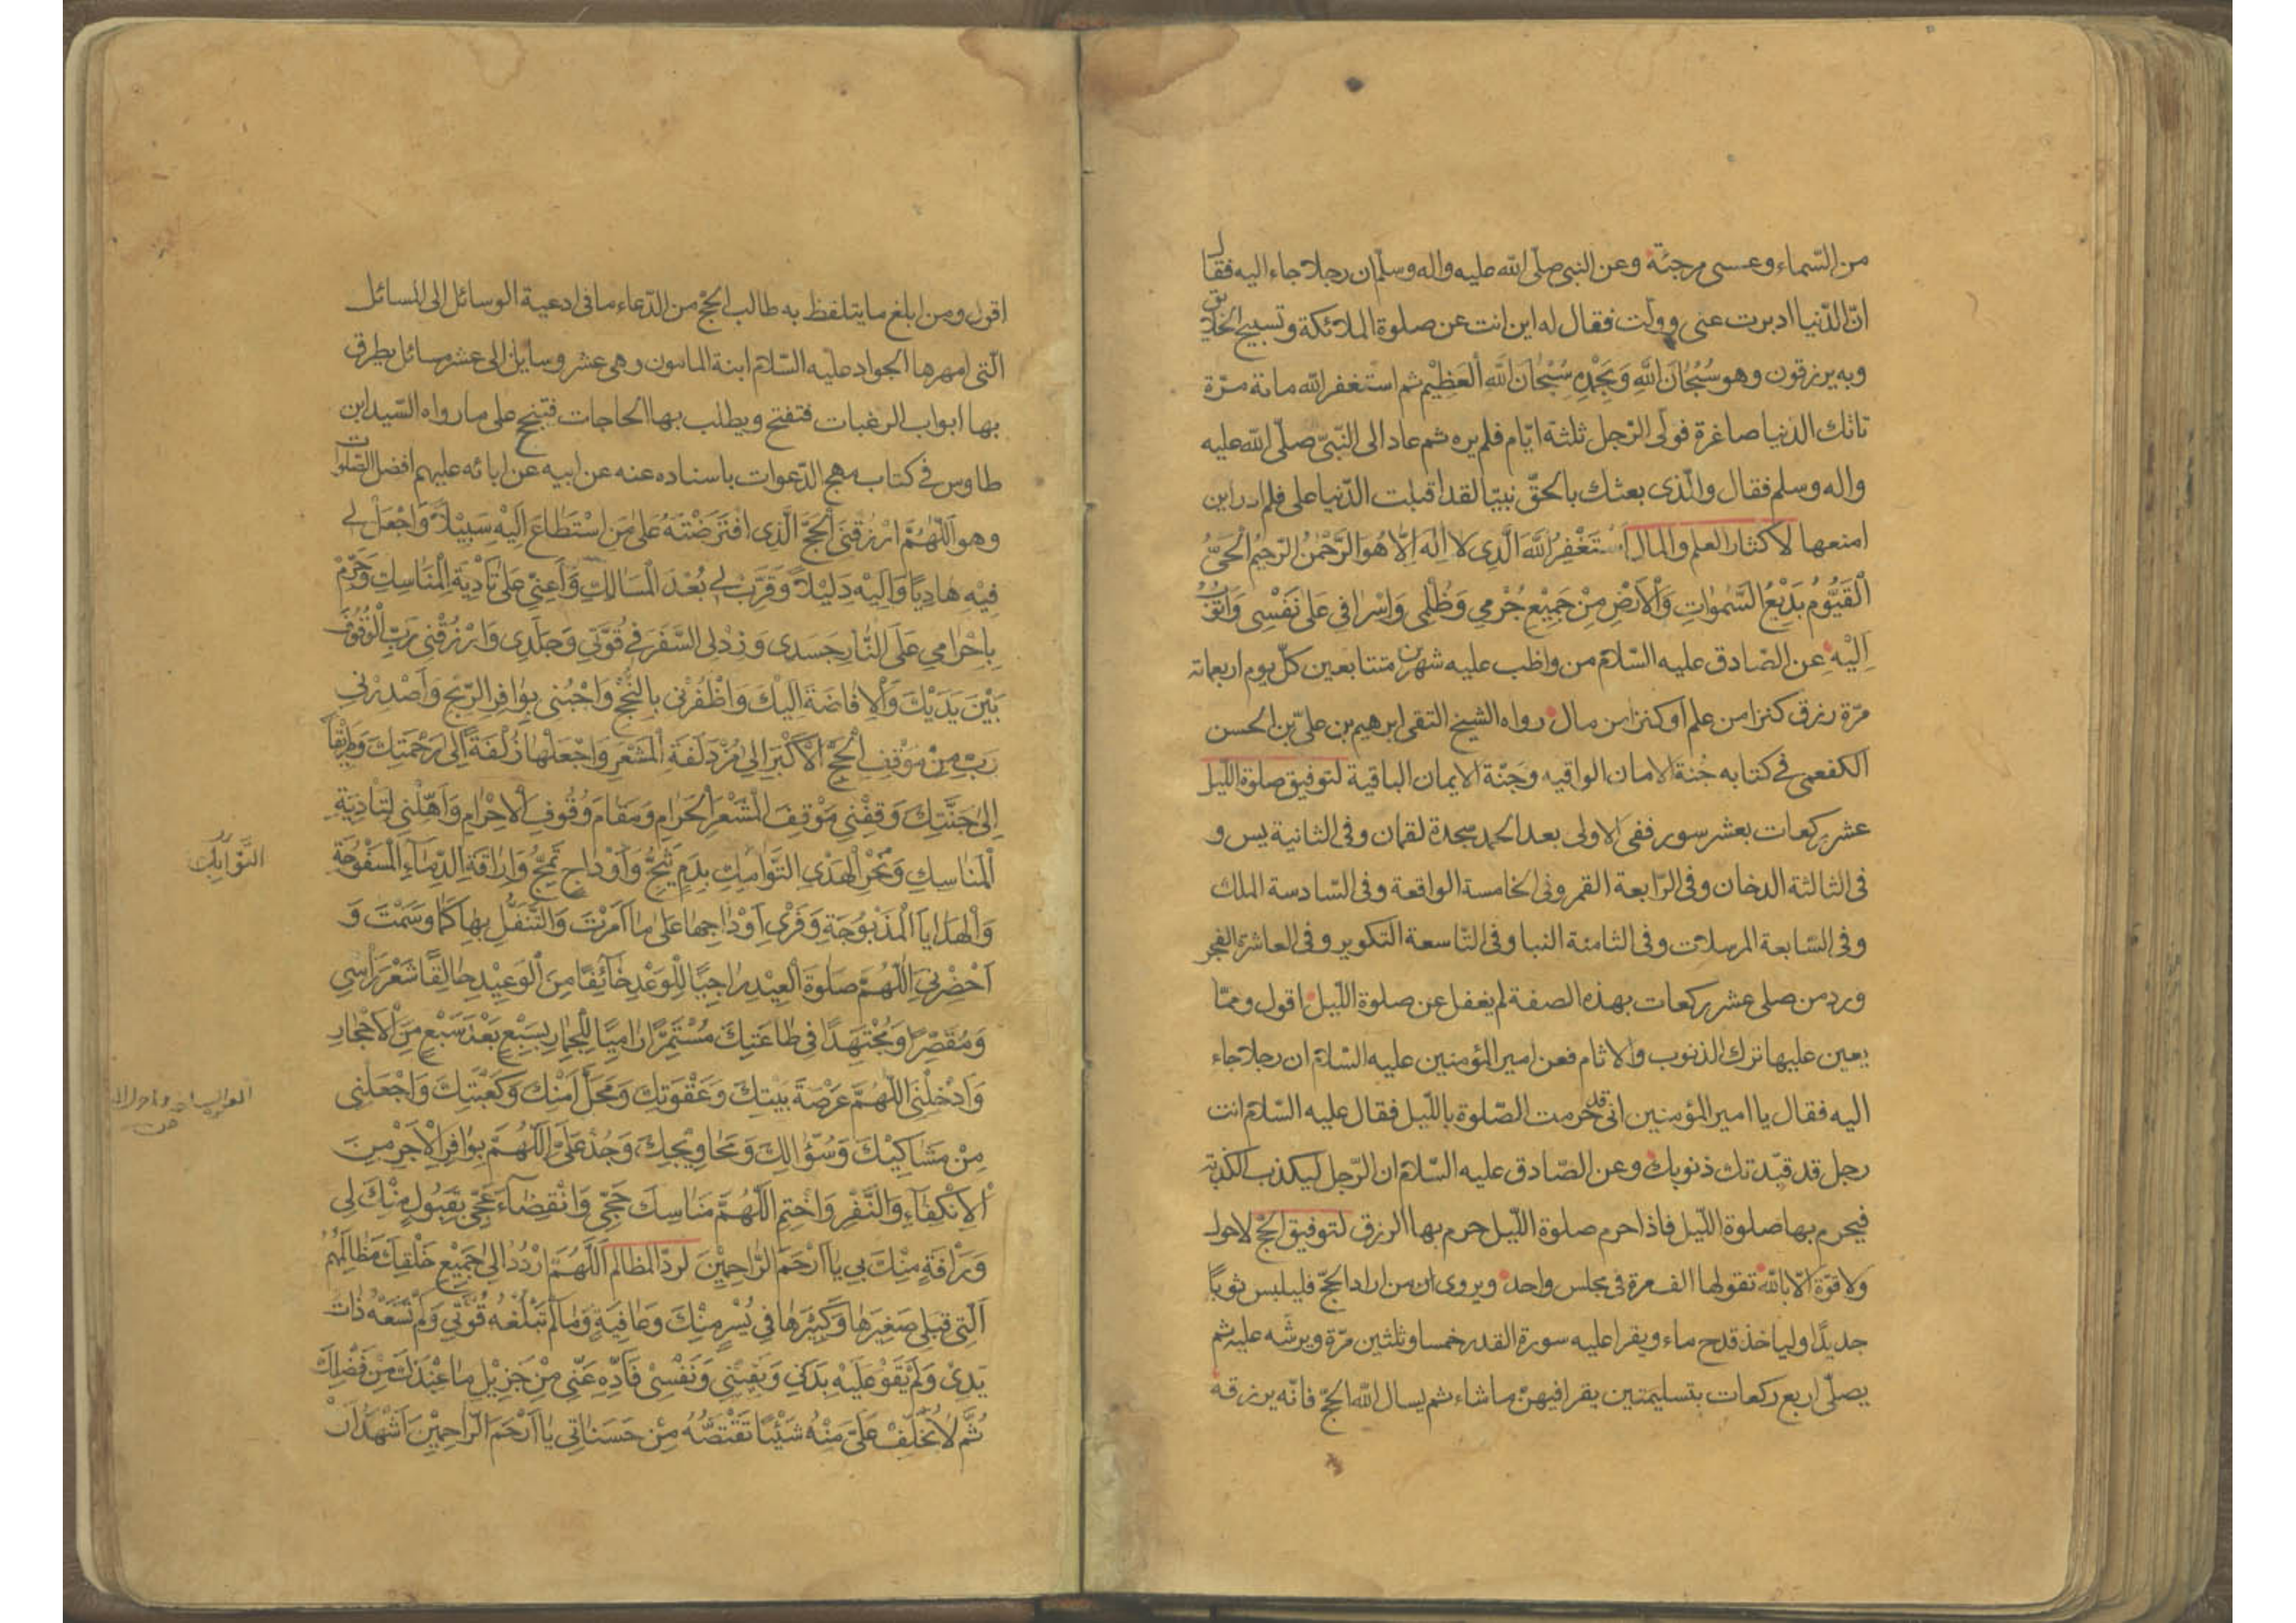 من السّماء وعسى مرجئة وعن النبي صلّى الله عليه واله وسلّم ان رجلا جاء اليه فقال
انّ الدّنيا ادبرت عنى وولّت فقال له اين انت عن صلوة الملائكة وتسبيح الخلائق
وبه يرزقون وهو سُبْحانَ اللهِ وَبِحَمْدِهِ سُبْحانَ اللهِ الْعَظِيْمِ ثم استغفر الله مائة مرّة
تاتك الدنيا صاغرة فولّى الرّجل ثلثة ايّام فلم يره ثم عاد الى النّبىّ صلّى الله عليه
واله وسلم فقال والّذى بعثك بالحقّ نبيّا لقد اقبلت الدّنيا على فلم ادر اين
امنعها لاكثار العلم والمال اَسْتَغْفِرُ اللهَ الَّذِى لا اِلهَ اِلّا هُوَ الرَّحْمنُ الرَّحيمُ الْحَىُّ
الْقَيُّومُ بَدِيْعُ السَّمواتِ وَالْاَرْضِ مِنْ جَمِيْعِ جُرْمي وَظُلْمى وَاِسْرافي عَلى نَفْسِى وَاَتُوْبُ
اِلَيْهِ عن الصّادق عليه السّلام من واظب عليه شهرين متتابعين كلّ يوم اربعمائة
مرّة رزق كنزا من علم او كنزا من مال رواه الشيخ التقى ابرهيم بن علىّ بن الحسن
الكفعمى في كتابه جُنة الامان الواقيه وجَنّة الايمان الباقية لتوفيق صلوة اللّيل
عشر ركعات بعشر سور ففى الاولى بعد الحمد سجدة لقمان وفى الثانية يس و
فى الثالثة الدخان وفى الرّابعة القمر وفى الخامسة الواقعة وفى السّادسة الملك
وفى السّابعة المرسلات وفى الثامنة النبا وفى التاسعة التكوير وفى العاشرة الفجر
ورد من صلى عشر ركعات بهذه الصفة لم يغفل عن صلوة اللّيل اقول وممّا
يعين عليها ترك الذنوب والاثام فعن امير المؤمنين عليه السّلام ان رجلا جاء
اليه فقال يا امير المؤمنين انى قد حرمت الصّلوة باللّيل فقال عليه السّلام انت
رجل قد قيّدتك ذنوبك وعن الصّادق عليه السّلام ان الرّجل ليكذب الكذبة
فيحرم بها صلوة اللّيل فاذا حرم صلوة اللّيل حرم بها الرزق لتوفيق الحجّ لا حول
ولا قوّة الّا بالله تقولها الف مرة فى مجلس واحد ويروى ان من اراد الحجّ فليلبس ثوبًا
جديدًا وليأخذ قدح ماء ويقرا عليه سورة القدر خمسا وثلثين مرّة ويرشّه عليه ثم
يصلّى اربع ركعات بتسليمتين يقرا فيهنّ ما شاء ثم يسال الله الحجّ فانّه يرزقه
اقول ومن ابلغ ما يتلفظ به طالب الحجّ من الدّعاء ما فى ادعية الوسائل الى المسائل
الّتى امهرها الجواد عليه السّلام ابنة المامون وهى عشر وسايل الى عشر مسائل يطرق
بها ابواب الرغبات فتفتح ويطلب بها الحاجات فتنجح على ما رواه السّيد ابن
طاوس في كتاب مهج الدّعوات باسناده عنه عن ابيه عن ابائه عليهم افضل الصّلوات
وهو اَللّهُمَّ ارْزُقْنى الْحَجَّ الَّذِى افْتَرَضْتَهُ عَلى مَنِ اسْتَطاعَ اِلَيْهِ سَبِيْلاً وَاجْعَلْ لى
فِيْهِ هادِيًا وَاِلَيْهِ دَلِيْلاً وَقَرِّبْ لى بُعْدَ الْمَسالِكِ وَاَعِنّى عَلى تَأدِيَةِ الْمَناسِكِ وَحَرِّمْ
بِاِحْرامي عَلَى النّارِ جَسَدى وَزِدْ لِى السَّفَرَ في قُوَّتي وَجَلَدِى وَارْزُقْني رَبِّ الْوُقُوفَ
بَيْنَ يَدَيْكَ وَالْاِفاضَةَ اِلَيْكَ وَاظْفُرْنى بِالنُّجْحِ وَاحْبُنى بِوافِرِ الرِّبْحِ وَاَصْدِرْنى
رَبِّ مِنْ مَوْقِفِ الْحَجِّ الْاَكْبَرِ اِلى مُزْدَلَفَةِ الْمَشْعَرِ وَاجْعَلْها زُلْفَةً اِلى رَحْمَتِكَ وَطَرِيْقًا
اِلى جَنَّتِكَ وَقِفْنى مَوْقِفَ الْمَشْعَرِ الْحَرامِ وَمَقامَ وُقُوفِ الْاِحْرامِ وَاَهِّلْنى لِتَادِيَةِ
الْمَناسِكِ وَنَحْرِ الْهَدْىِ التَّوامِكِ بِدَمٍ يَثُجُّ وَاَوْداجٍ تَمُجُّ وَاِراقَةِ الدِّماءِ الْمَسْفُوحَةِ
وَالْهَدايا الْمَذْبُوحَةِ وَفَرْىِ اَوْداجِها عَلى ما اَمَرْتَ وَالتَّنَفُّلِ بِها كَما وَسَمْتَ وَ
اَحْضِرْنِى اللّهُمَّ صَلوةَ الْعِيْدِ راجِيًا لِلْوَعْدِ خائِفًا مِنَ الْوَعِيْدِ حالِقًا شَعْرَ رَأْسِى
وَمُقَصِّرًا وَمُجْتَهِدًا فى طاعَتِكَ مُسْتَمِرًّا رامِيًا لِلْجِمارِ بِسَبْعٍ بَعْدَ سَبْعٍ مِنَ الْاَحْجارِ
وَاَدْخِلْنِى اللّهُمَّ عَرْصَةَ بَيْتِكَ وَعَقْوَتِكَ وَمَحَلَّ اَمْنِكَ وَكَعْبَتِكَ وَاجْعَلْنى
مِنْ مَشاكِيْكَ وَسُؤّالِكَ وَمَحاوِيْجِكَ وَجُدْ عَلَىَّ اللّهُمَّ بِوافِرِ الْاَجْرِ مِنَ
الْاِنْكِفاءِ وَالنَّفْرِ وَاخْتِمِ اللّهُمَّ مَناسِكَ حَجّى وَانْقِضاءَ عَجّى بِقَبُولٍ مِنْكَ لى
وَرَأفَةٍ مِنْكَ بى يا اَرْحَمَ الرّاحِمِيْنَ لردّ المظالم اَللّهُمَّ ارْدُدْ اِلى جَمِيْعِ خَلْقِكَ مَظالِمَهُمُ
الَّتِى قِبَلِى صَغِيْرَها وَكَبِيْرَها فى يُسْرٍ مِنْكَ وَعافِيَةٍ وَما لَمْ تَبْلُغْهُ قُوَّتى وَلَمْ تَسَعْهُ ذاتُ
يَدِى وَلَمْ يَقْوَ عَلَيْهِ بَدَنى وَيَقِيْنى وَنَفْسِى فَاَدِّهِ عَنّى مِنْ جَزِيْلِ ما عِنْدَكَ مِنْ فَضْلِكَ
ثُمَّ لا تُخَلِّفْ عَلَىَّ مِنْهُ شَيْئًا تَقْتَصُّهُ مِنْ حَسَناتى يا اَرْحَمَ الرّاحِمِيْنَ اَشْهَدُ اَنْ